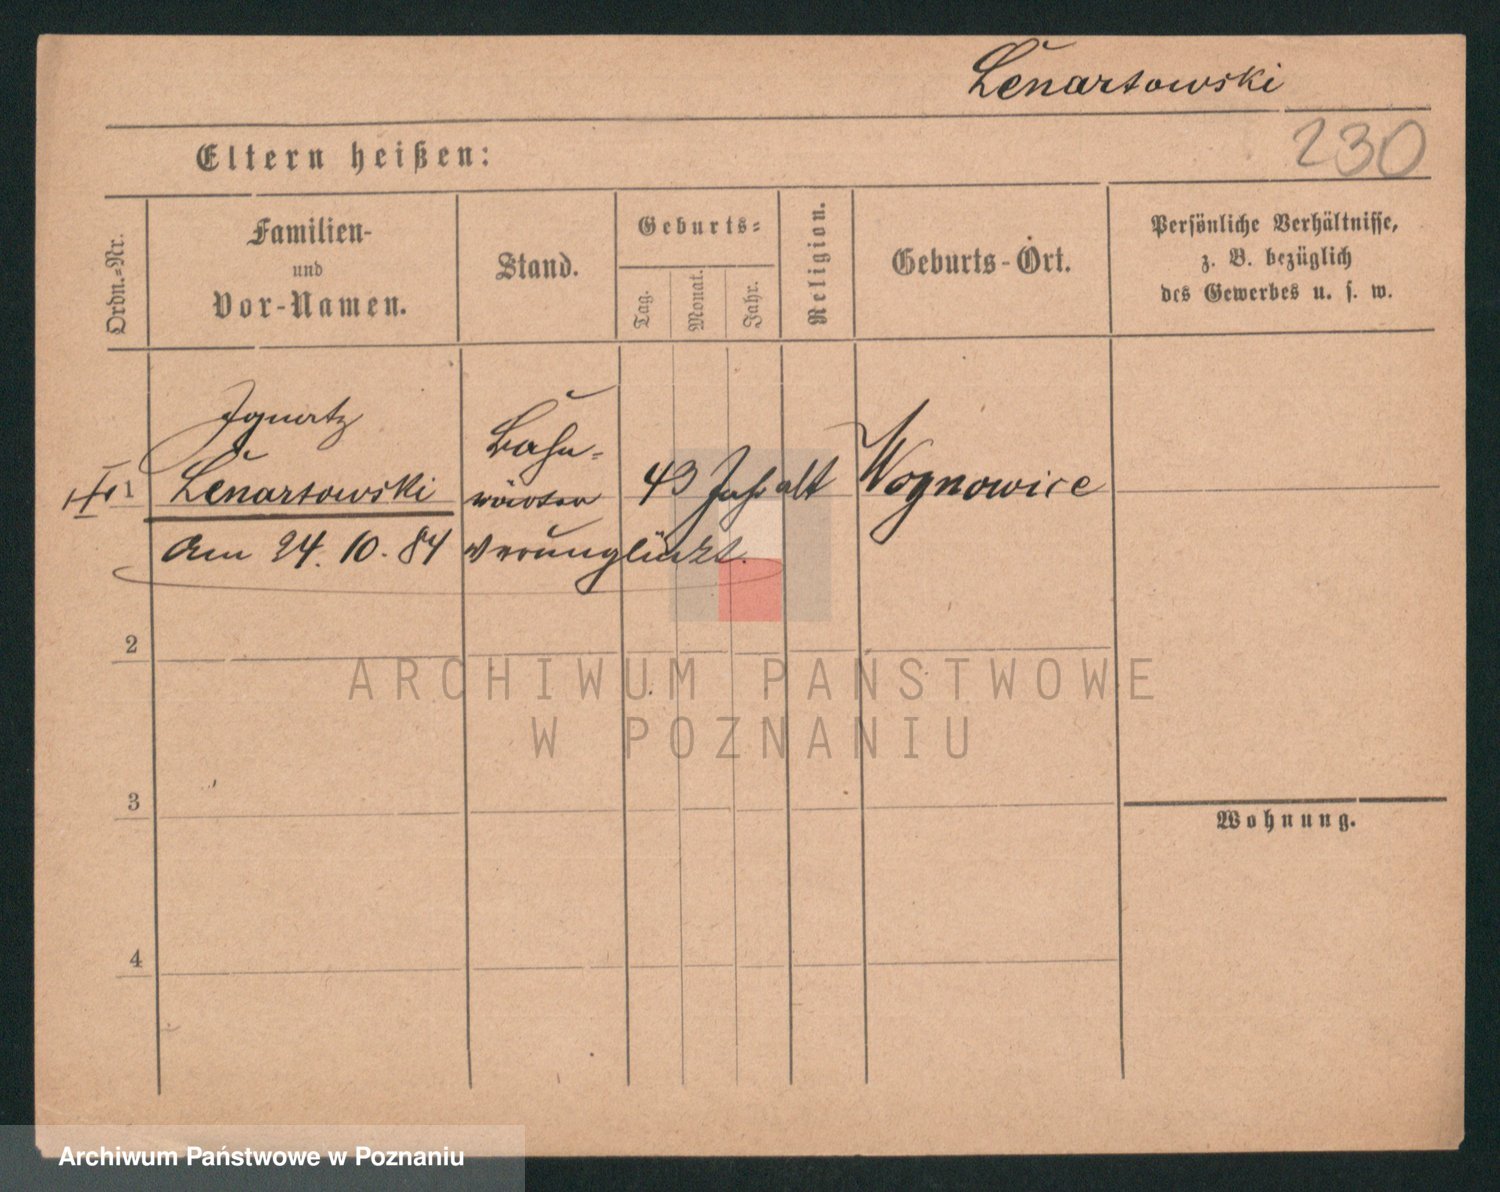 Lenartowski
230
Eltern heißen:
Ordn.-Nr.
Familien-
und
Vor-Namen.
Stand.
Geburts-
Tag.
Monat.
Jahr.
Religion.
Geburts-Ort.
Persönliche Verhältnisse,
z. B. bezüglich
des Gewerbes u. s. w.
Ignatz
Lenartowski
Bahn-
wärter
1
43 Jahr alt
Wognowice
am 24. 10. 84 verunglückt.
2
3
4
Wohnung.
ARCHIWUM PAŃSTWOWE
W POZNANIU
Archiwum Państwowe w Poznaniu